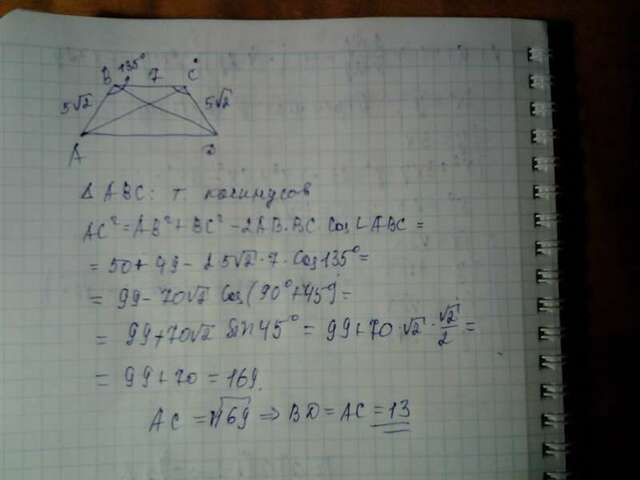 B 135° 7 C
5√2 5√2
A D
Δ ABC: т. косинусов
AC² = AB² + BC² - 2AB·BC Cos∠ABC =
= 50 + 49 - 2 5√2 · 7 · Cos135° =
= 99 - 70√2 Cos(90° + 45°) =
= 99 + 70√2 Sin 45° = 99 + 70 · √2 · √2/2 =
= 99 + 70 = 169.
AC = √169 ⇒ BD = AC = 13